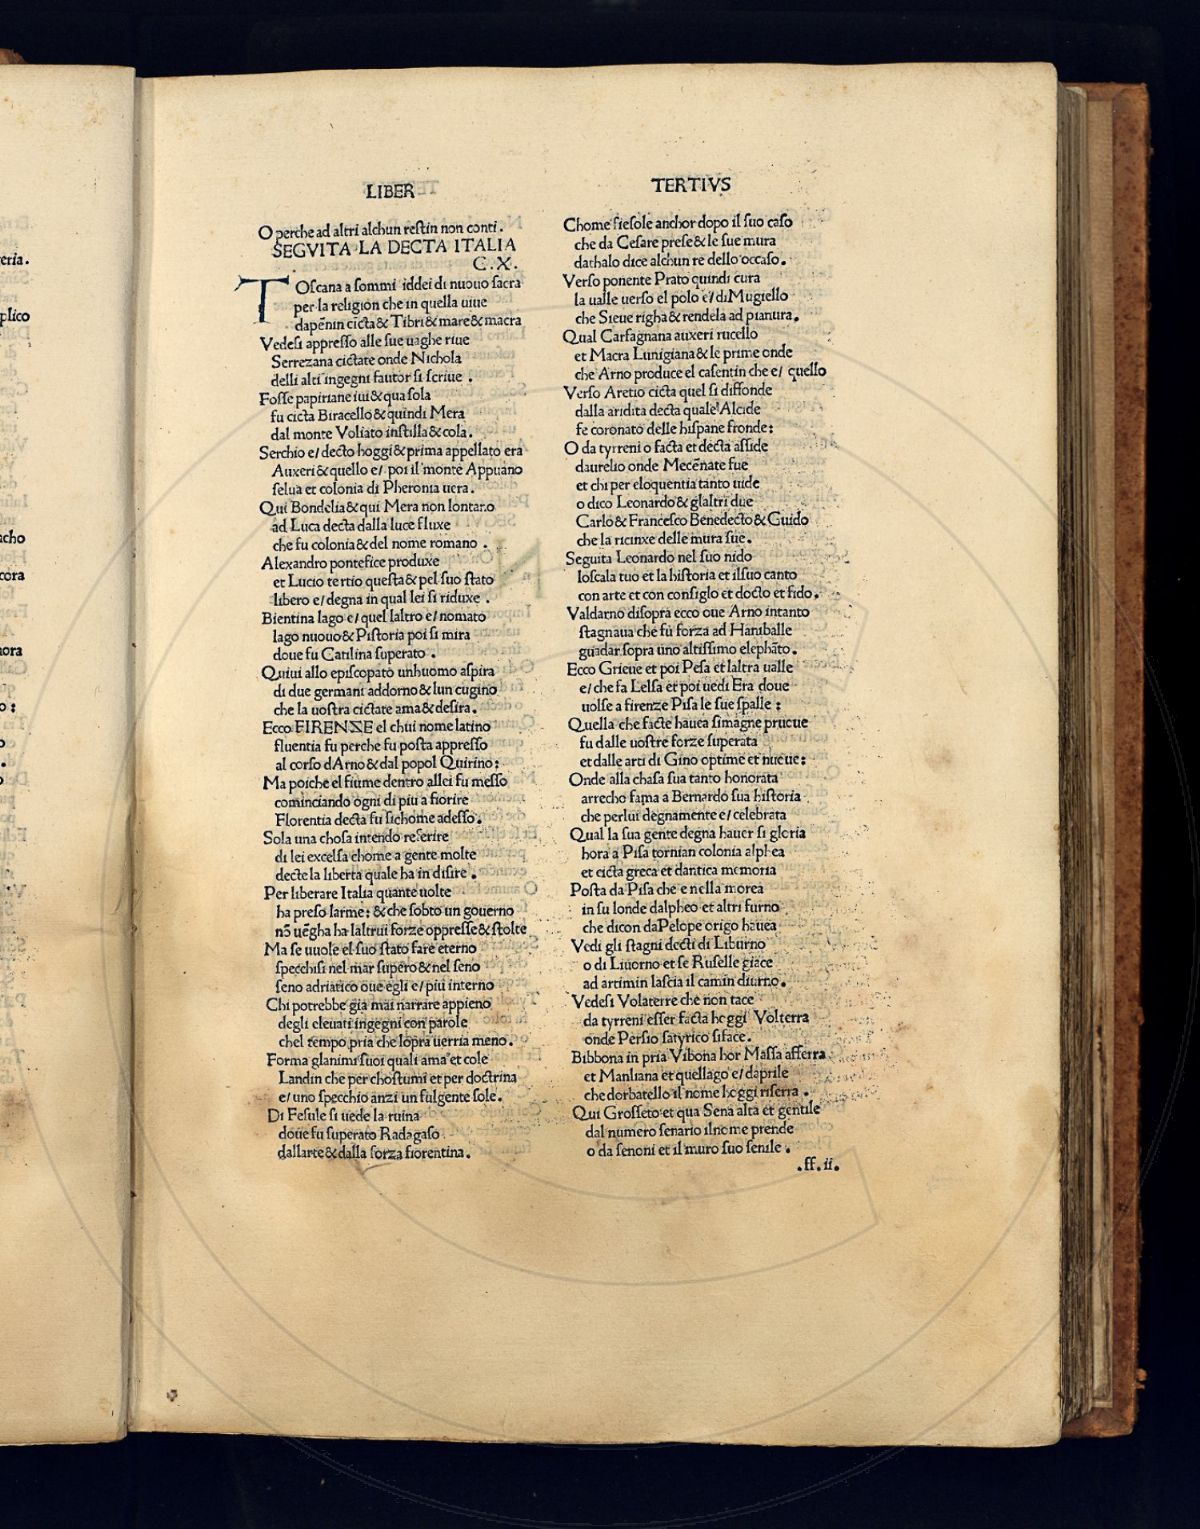 LIBER
TERTIVS
O perche ad altri alchun reſtin non conti.
SEGVITA LA DECTA ITALIA
C.X.
TOſcana a ſommi iddei di nuouo ſacra
per la religion che in quella uiue
dapēnin cicta & Tibri & mare & macra
Vedeſi appreſſo alle ſue uaghe riue
Serrezana cictate onde Nichola
delli alti ingegni fautor ſi ſcriue.
Foſſe papiriane iui & qua ſola
fu cicta Biracello & quindi Mera
dal monte Voliato inſtilla & cola.
Serchio e/ decto hoggi & prima appellato era
Auxeri & quello e/ poi il monte Appuano
ſelua et colonia di Pheronia uera.
Qui Bondelia & qui Mera non lontano
ad Luca decta dalla luce fluxe
che fu colonia & del nome romano.
Alexandro pontefice produxe
et Lucio tertio queſta & pel ſuo ſtato
libero e/ degna in qual lei ſi riduxe.
Bientina lago e/ quel laltro e/ nomato
lago nuouo & Piſtoria poi ſi mira
doue fu Catilina ſuperato.
Quiui allo epiſcopato unhuomo aſpira
di due germani addorno & lun cugino
che la uoſtra cictate ama & deſira.
Ecco FIRENZE el chui nome latino
fluentia fu perche fu poſta appreſſo
al corſo dArno & dal popol Quirino:
Ma poiche el fiume dentro allei fu meſſo
cominciando ogni di piu a fiorire
Florentia decta fu ſichome adeſſo.
Sola una choſa intendo referire
di lei excelſa chome a gente molte
decte la liberta quale ha in diſire.
Per liberare Italia quante uolte
ha preſo larme: & che ſobto un gouerno
nō uēgha ha laltrui forze oppreſſe & ſtolte
Ma ſe uuole el ſuo ſtato fare eterno
ſpecchiſi nel mar ſupero & nel ſeno
ſeno adriatico oue egli e/ piu interno
Chi potrebbe gia mai narrare appieno
degli eleuati ingegni con parole
chel tempo pria che lopra uerria meno.
Forma glanimi ſuoi quali ama et cole
Landin che per choſtumi et per doctrina
e/ uno ſpecchio anzi un fulgente ſole.
Di Feſule ſi uede la ruina
doue fu ſuperato Radagaſo
dallarte & dalla forza fiorentina.
Chome fieſole anchor dopo il ſuo caſo
che da Ceſare preſe & le ſue mura
dathalo dice alchun re dello occaſo.
Verſo ponente Prato quindi cura
la ualle uerſo el polo e/ di Mugiello
che Sieue righa & rendela ad pianura.
Qual Carfagnana auxeri rucello
et Macra Lunigiana & le prime onde
che Arno produce el caſentin che e/ quello
Verſo Aretio cicta quel ſi diffonde
dalla aridita decta quale Alcide
fe coronato delle hiſpane fronde:
O da tyrreni o facta et decta aſſide
daurelio onde Mecēnate fue
et chi per eloquentia tanto uide
o dico Leonardo & glaltri due
Carlo & Franceſco Benedecto & Guido
che la ricinxe delle mura ſue.
Seguita Leonardo nel ſuo nido
loſcala tuo et la hiſtoria et ilſuo canto
con arte et con conſiglo et docto et fido.
Valdarno diſopra ecco oue Arno intanto
ſtagnaua che fu forza ad Haniballe
guadar ſopra uno altiſſimo elephāto.
Ecco Grieue et poi Peſa et laltra ualle
e/ che fa Lelſa et poi uedi Era doue
uolſe a firenze Piſa le ſue ſpalle:
Quella che facte hauea ſimagne prueue
fu dalle uoſtre forze ſuperata
et dalle arti di Gino optime et nueue:
Onde alla chaſa ſua tanto honorata
arrecho fama a Bernardo ſua hiſtoria
che perlui degnamente e/ celebrata
Qual la ſua gente degna hauer ſi gloria
hora a Piſa tornian colonia alphea
et cicta greca et dantica memoria
Poſta da Piſa che e nella morea
in ſu londe dalpheo et altri furno
che dicon da Pelope origo hauea
Vedi gli ſtagni decti di Liburno
o di Liuorno et ſe Ruſelle giace
ad artimin laſcia il camin diurno.
Vedeſi Volaterre che non tace
da tyrreni eſſer facta hoggi Volterra
onde Perſio ſatyrico ſiface.
Bibbona in pria Vibona hor Maſſa afferra
et Manliana et quellago e/ daprile
che dorbatello il nome hoggi riſerra.
Qui Groſſeto et qua Sena alta et gentile
dal numero ſenario ilnome prende
o da ſenoni et il muro ſuo ſenile.
.ff.ii.
eria.
plico
acho
cora
nora